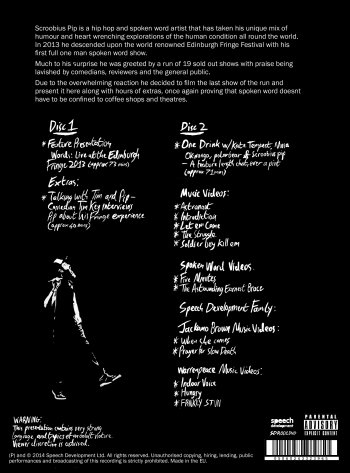 Scroobius Pip is a hip hop and spoken word artist that has taken his unique mix of
humour and heart wrenching explorations of the human condition all round the world.
In 2013 he descended upon the world renowned Edinburgh Fringe Festival with his
first full one man spoken word show.
Much to his surprise he was greeted by a run of 19 sold out shows with praise being
lavished by comedians, reviewers and the general public.
Due to the overwhelming reaction he decided to film the last show of the run and
present it here along with hours of extras, once again proving that spoken word doesnt
have to be confined to coffee shops and theatres.
Disc 1
* Feature Presentation
Words: Live at the Edinburgh
Fringe 2013 (approx 73 min)
Extras:
* Talking with Tim and Pip -
Comedian Tim Key Interviews
Pip about his Fringe experience
(approx 40 mins)
Disc 2
* One Drink w/ Kate Tempest,
polarbear & Scroobius pip
- A feature length chat over a pint
(approx 71 min)
Music Videos:
* Astronaut
* Introdiction
* Let em Come
* The Struggle
* Soldier boy kill em
Spoken Word Videos:
* Five Minutes
* The Astounding Earnest Brace
Speech Development Family:
Jackamo Brown Music Videos:
* When she comes
* Prayer for Slow Death
Warrenpeace Music Videos:
* Indoor Voice
* Hungry
* FRNKLY STJN
WARNING:
This presentation contains very strong
language and topics of an adult nature.
Viewer discretion is advised.
speech
development
PARENTAL
ADVISORY
EXPLICIT CONTENT
(P) and © 2014 Speech Development Ltd. All rights reserved. Unauthorised copying, hiring, lending, public
performances and broadcasting of this recording is strictly prohibited. Made in the EU.